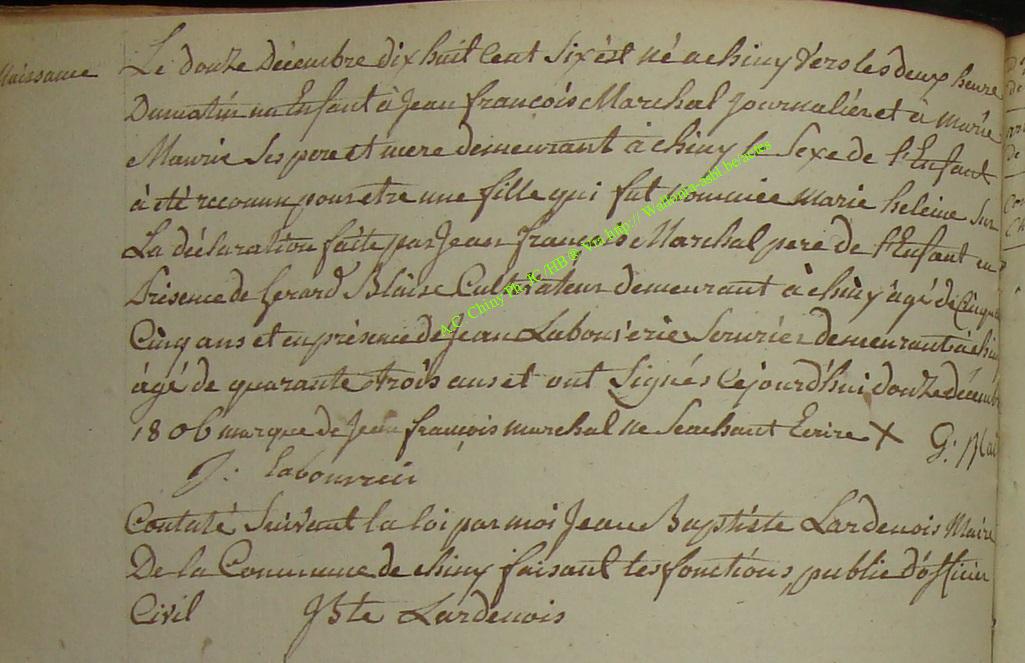 Naissance
Le douze Décembre dix huit Cent Six est né a chiny Vers les deux heure
Du matin un Enfant à Jean françois Marchal Journalier et à marie
Maurie Ses pere et mere demeurant à chiny le Sexe de l'Enfant
à été reconnu pour etre une fille qui fut nommée marie heleine Sur
La déclaration faite par Jean françois Marchal pere de l'Enfant en
Présence de Gerard Blaise Cultivateur demeurant à chiny âgé de
Cinq ans et en présence de Jean Labouverie Serurier demeurant à
âgé de quarante trois ans et ont Signés Cejourd'hui douze décemb
1806 marque de Jean françois marchal ne Scachant Ecrire X G:
J:
Contaté Suivant la loi par moi Jean Baptiste Lardenois Maire
De la Commune de chiny faisant les fonctions public d'officier
Civil JBte Lardenois
A.C. Chiny Ph. JC /HB @ Via http:// Wallonia-asbl.be/actes